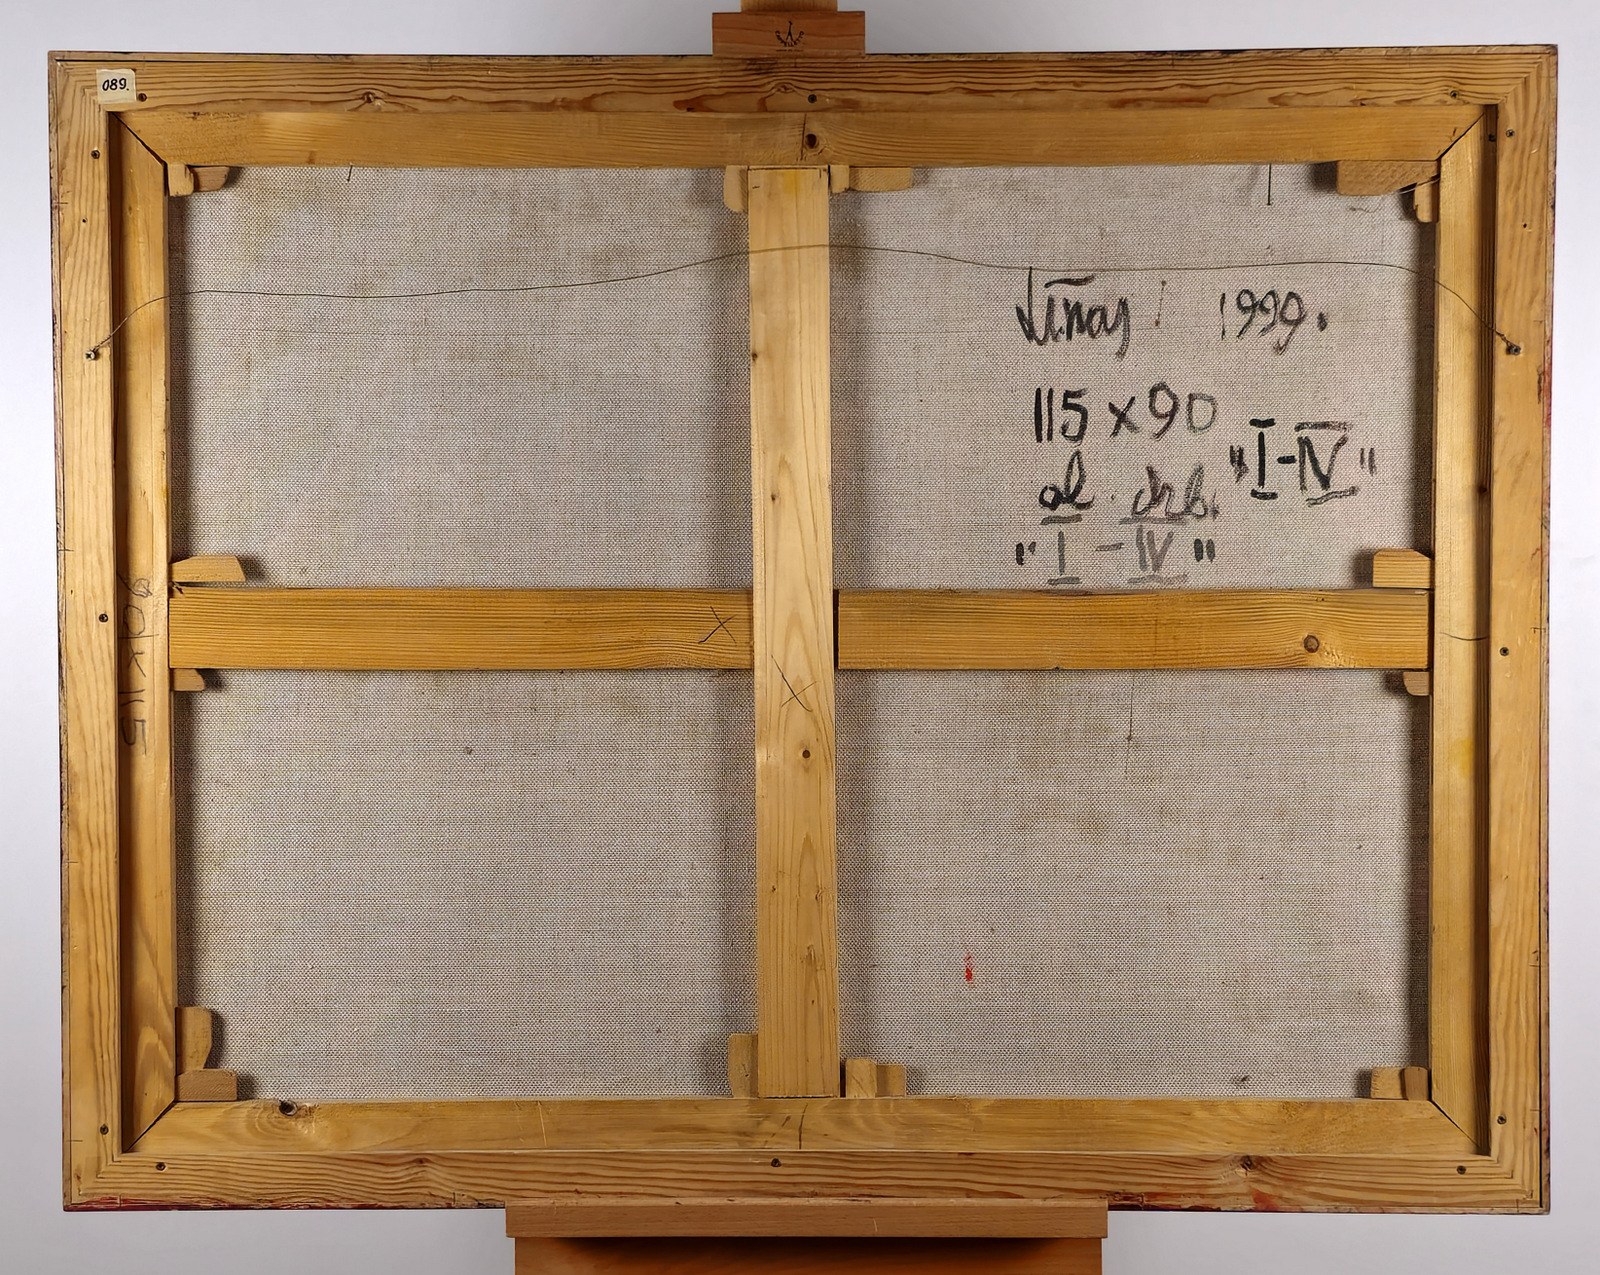 089.
1999.
115 x 90
"I-IV"
al. drb.
"I - IV"
90 x 115